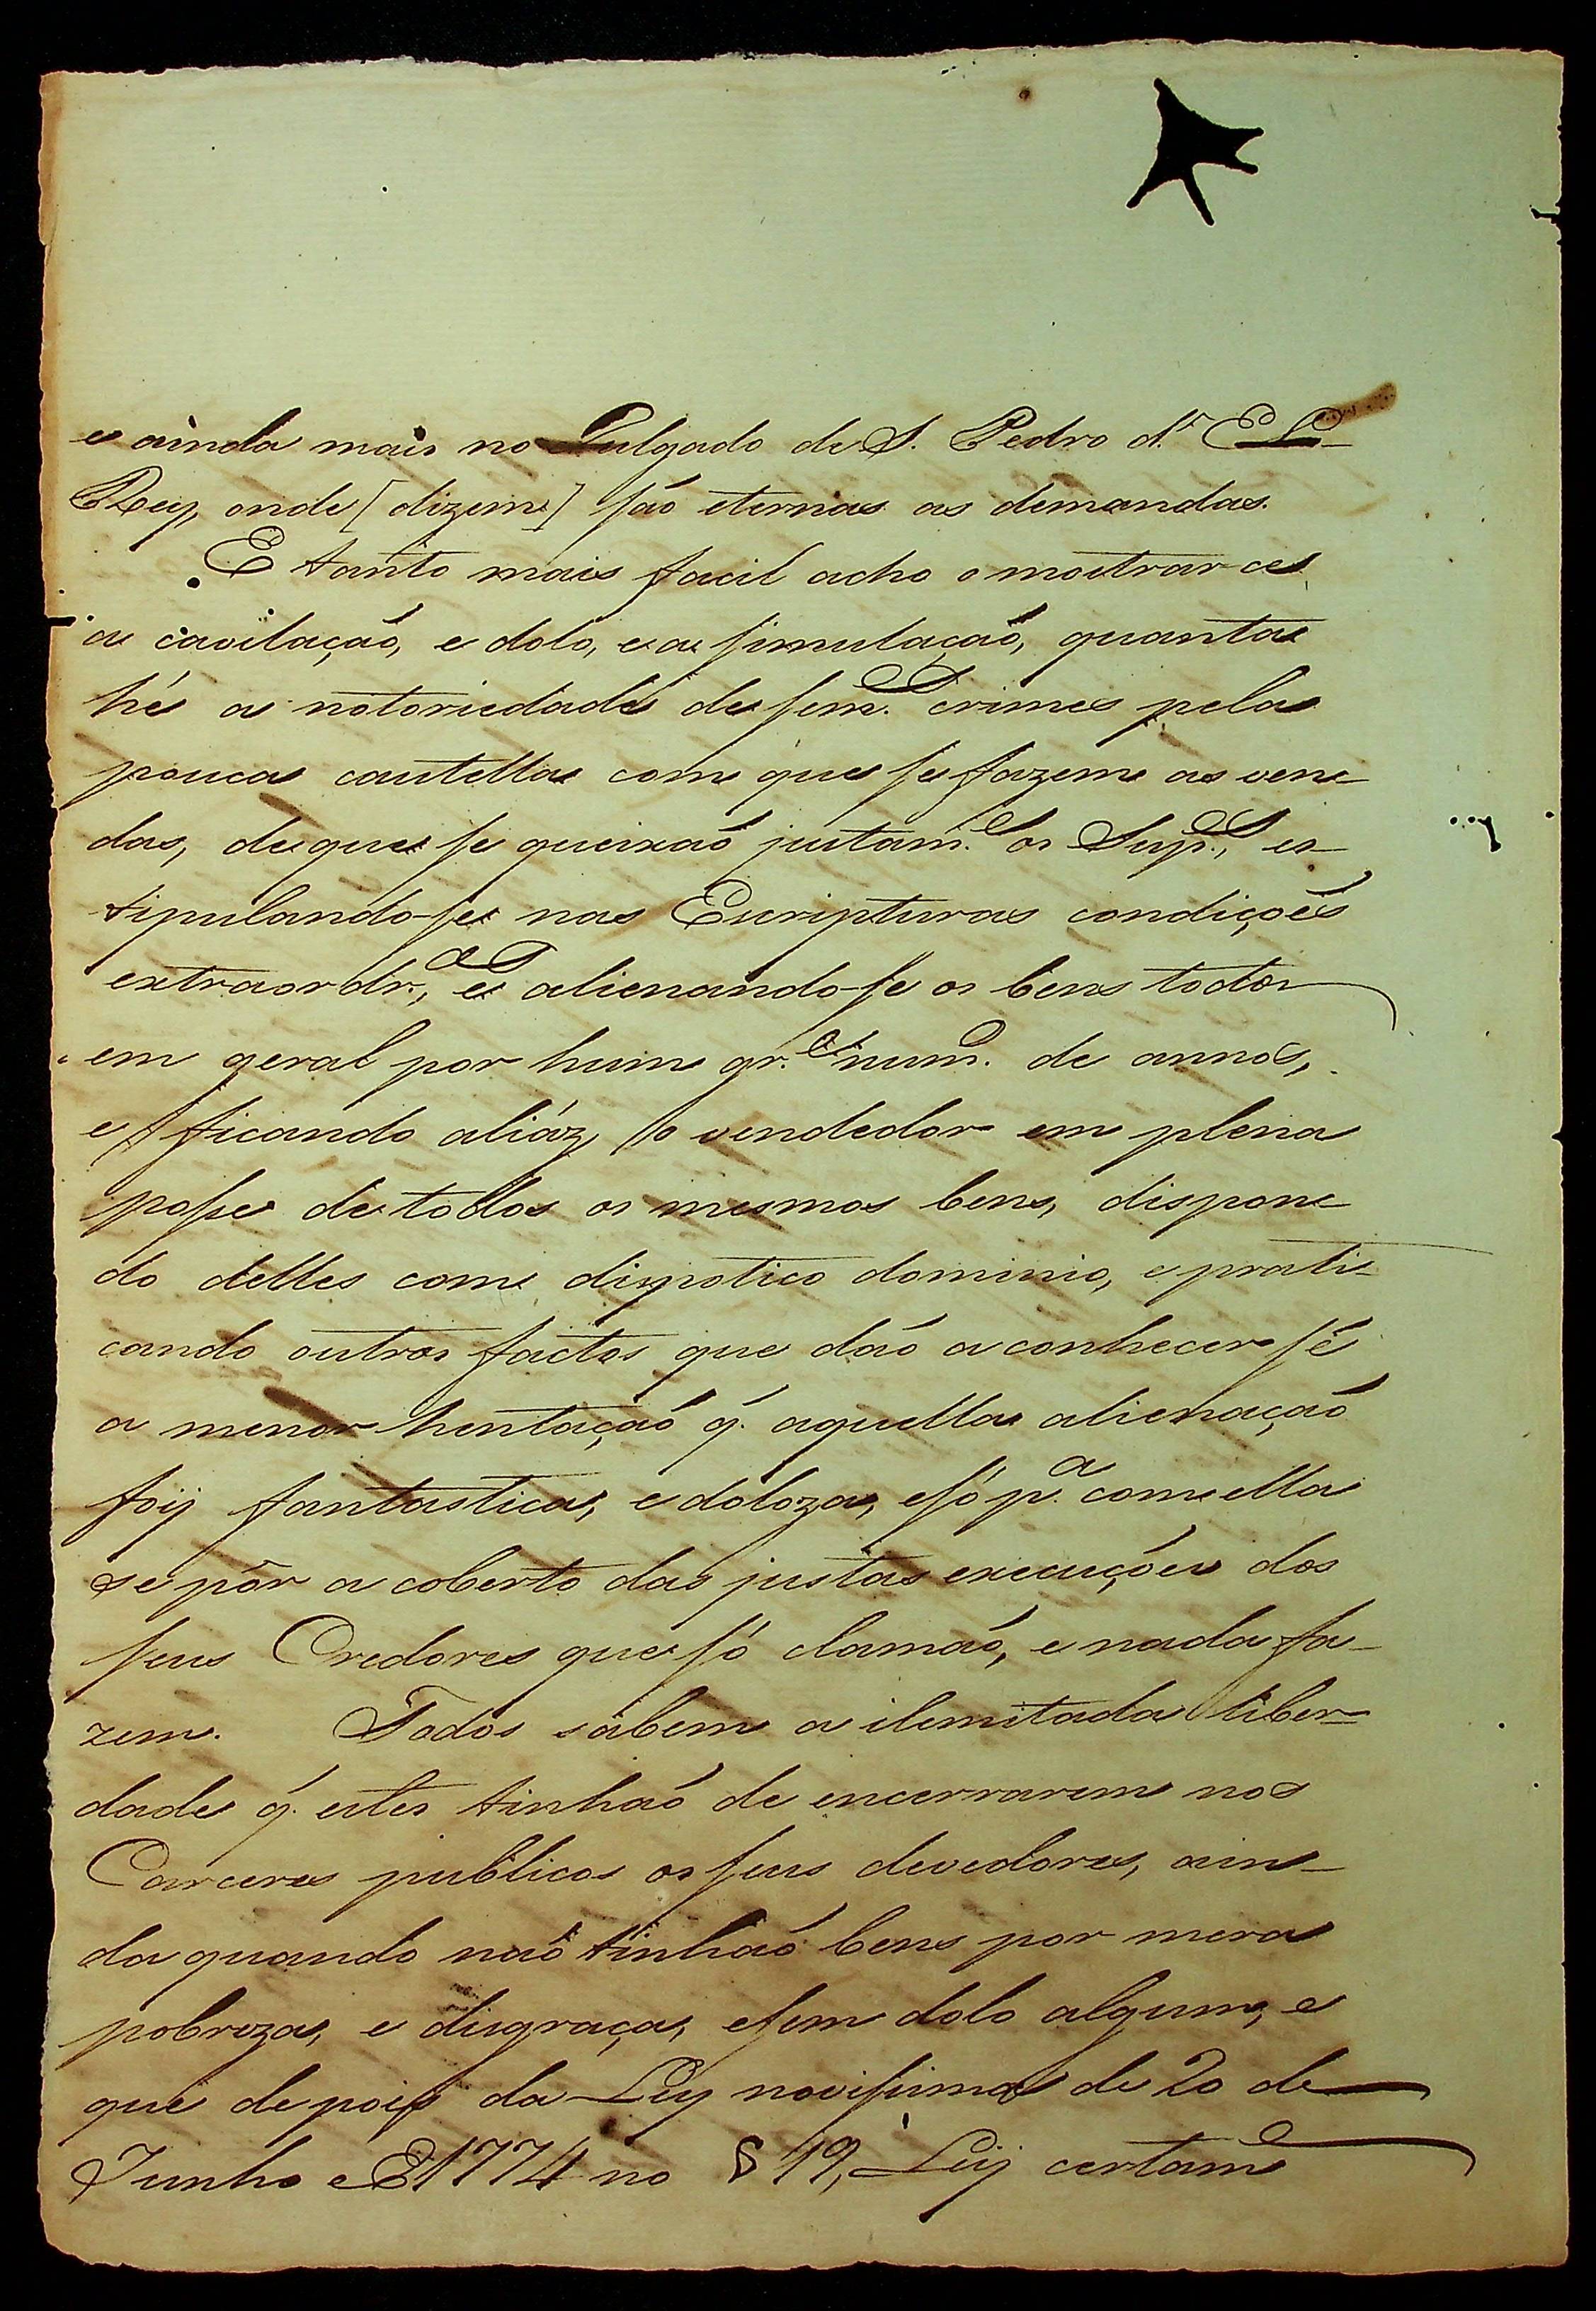 e ainda mais no Julgado de S. Pedro d' El
Rey, onde [dizem] são eternas as demandas.
E tanto mais facil acho o mostrar-ce
a cavilação, e dolo, e a simulação, quanta
hé a notoriedade de sem.es crimes pela
pouca cautella com que se fazem as ven-
das, de que se queixaõ justam.e os Sup.es, es-
tipulando-se nas Escripturas condições
extraordr.as, e alienando-se os bens todos
em geral por hum gr.e num.o de annos,
e ficando aliáz o vendedor em plena
posse de todos os mesmos bens, dispon-
do delles com dispotico dominio, e prati-
cando outros factos que dão a conhecer sé
a menor hentação q. aquella alienação
foy fantastica, e doloza, e só p.a com ella
se pôr a coberto das justas execuções dos
seus Credores que só clamaõ, e nada fa-
zem. Todos sabem a ilemitada liber-
dade q. estes tinhaõ de encerrarem nos
Carceres publicos os seus devedores, ain-
da quando naõ tinhaõ bens por mera
pobreza, e disgraça, e sem dolo algum, e
que depois da Ley novissima de 20 de
Junho 1774 no § 19, Ley certam.e